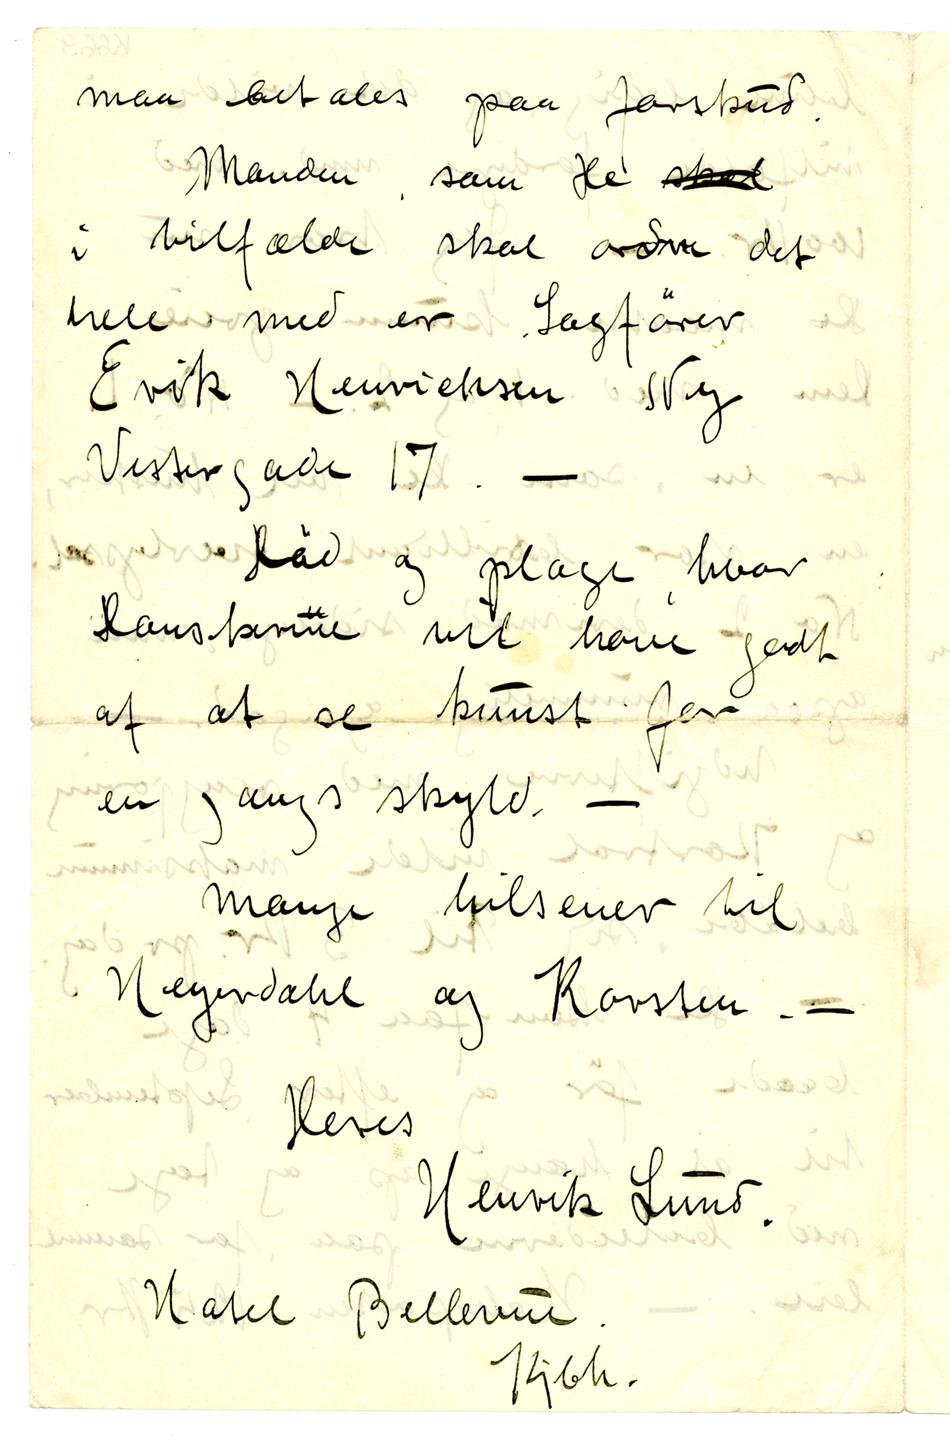 maa betales paa forskud.
Manden, som De ~~skal~~
i tilfælde skal ordne det
hele med er Sagförer
Erik Henrichsen Ny
Vestergade 17. —
Raad og plage, hvor
Danskerne vil have godt
af at se kunst for
en gangs skyld. —
Mange hilsener til
Heyerdahl og Karsten. —
Deres
Henrik Lund.
Hotel Bellevue.
Kjbh.